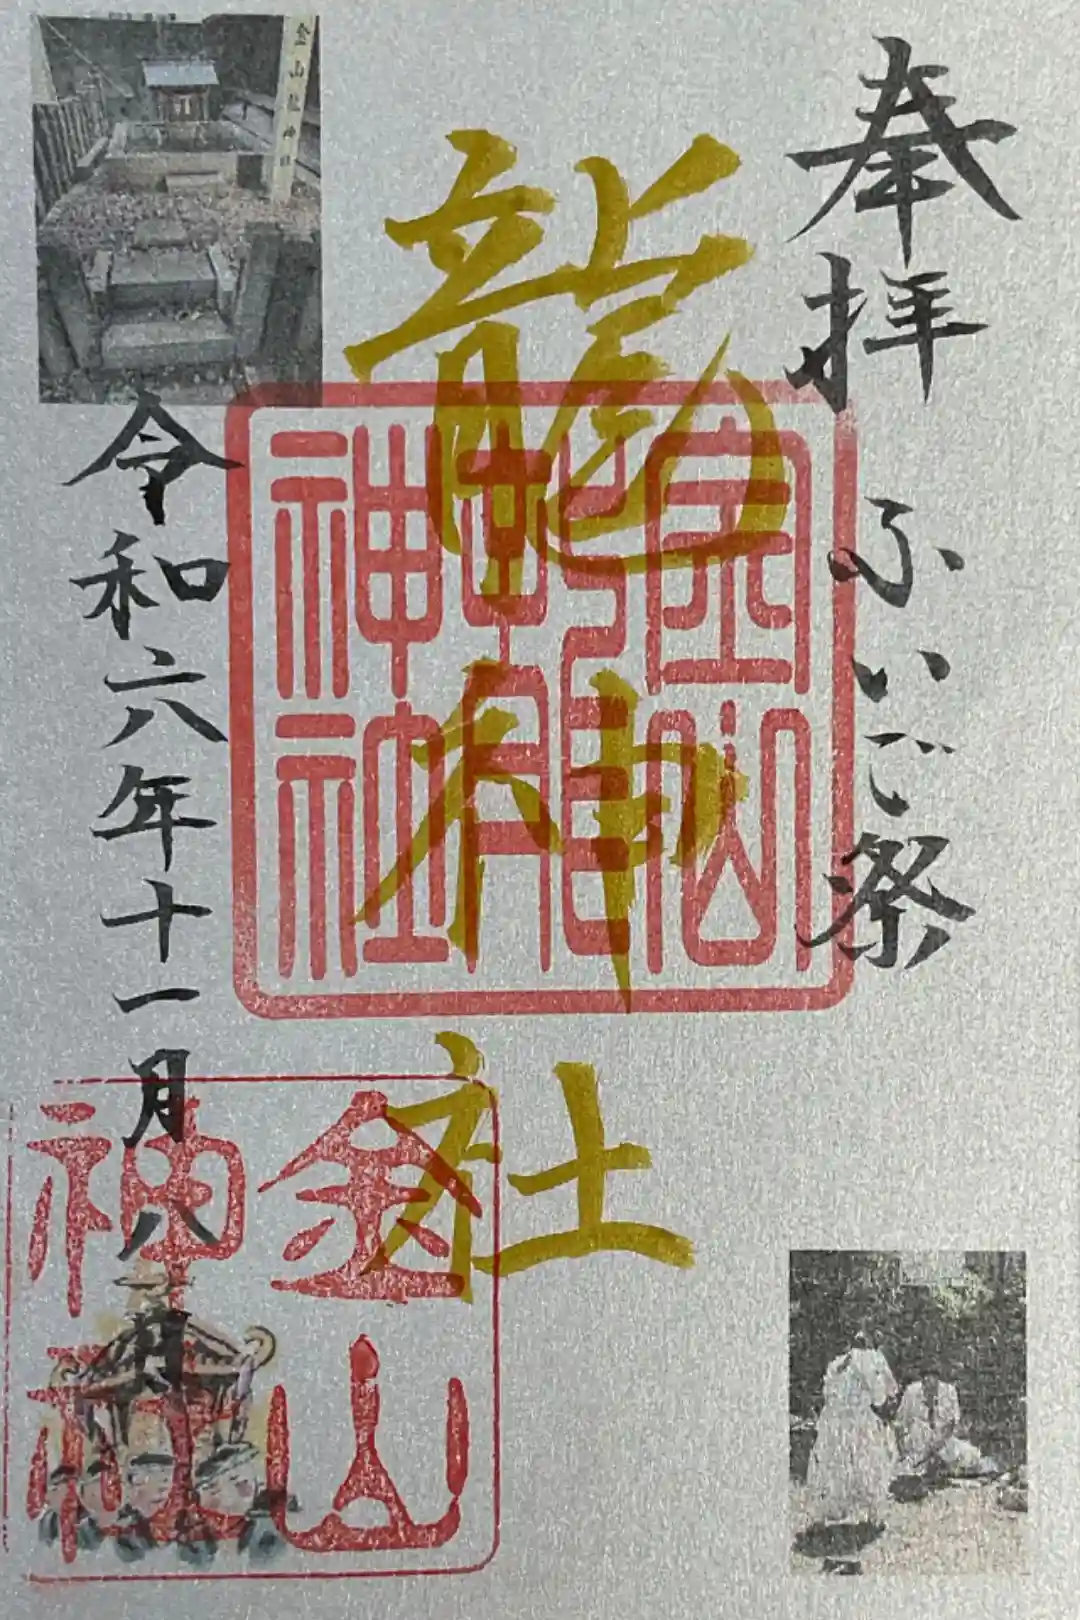 奉拝 ふいご祭
龍神社
金山
龍神社
金山神社
令和六年十一月八日